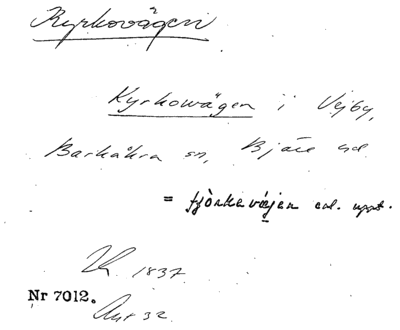 Kyrkovägen
Kyrkowägen i Vejby,
Barkåkra sn, Bjäre hd.
= fjòrkevä̀jen enl. uppt.
1837
Nr 7012.
Avt 32